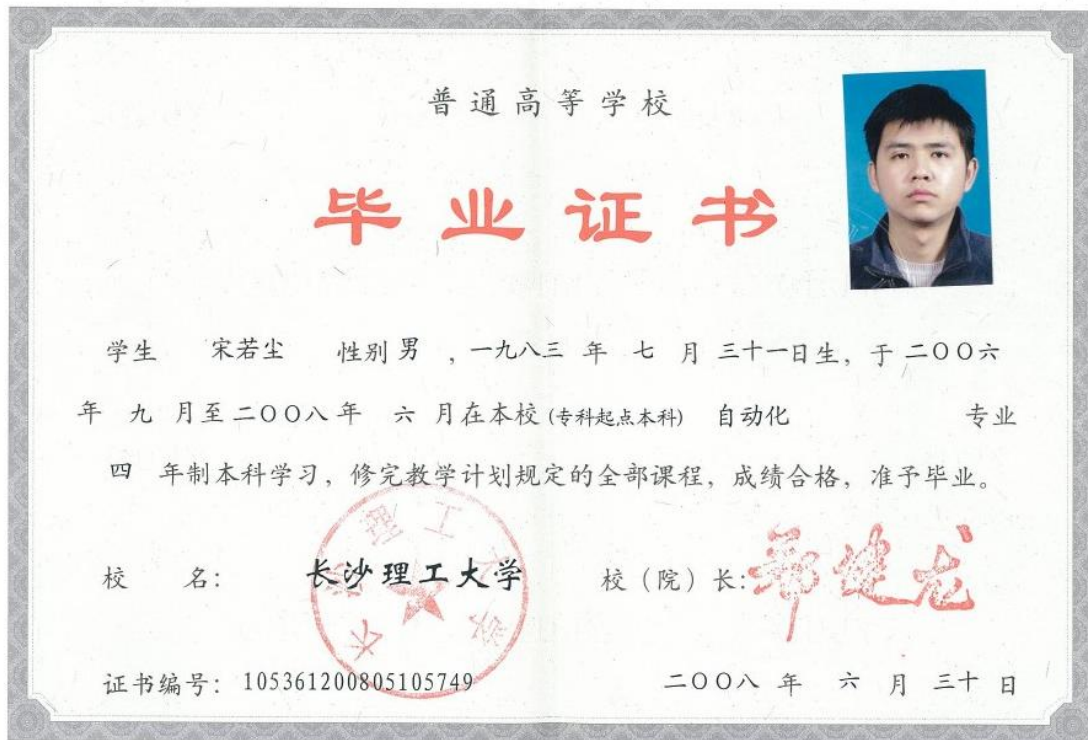 普通高等学校
毕业证书
学生 宋若尘 性别 男 ，一九八三 年 七 月 三十一日生，于 二〇〇六
年 九 月至 二〇〇八 年 六 月在本校 (专科起点本科) 自动化 专业
四 年制本科学习，修完教学计划规定的全部课程，成绩合格，准予毕业。
校 名： 长沙理工大学 校（院）长： 郑健龙
长沙理工大学
证书编号： 105361200805105749 二〇〇八 年 六 月 三十 日